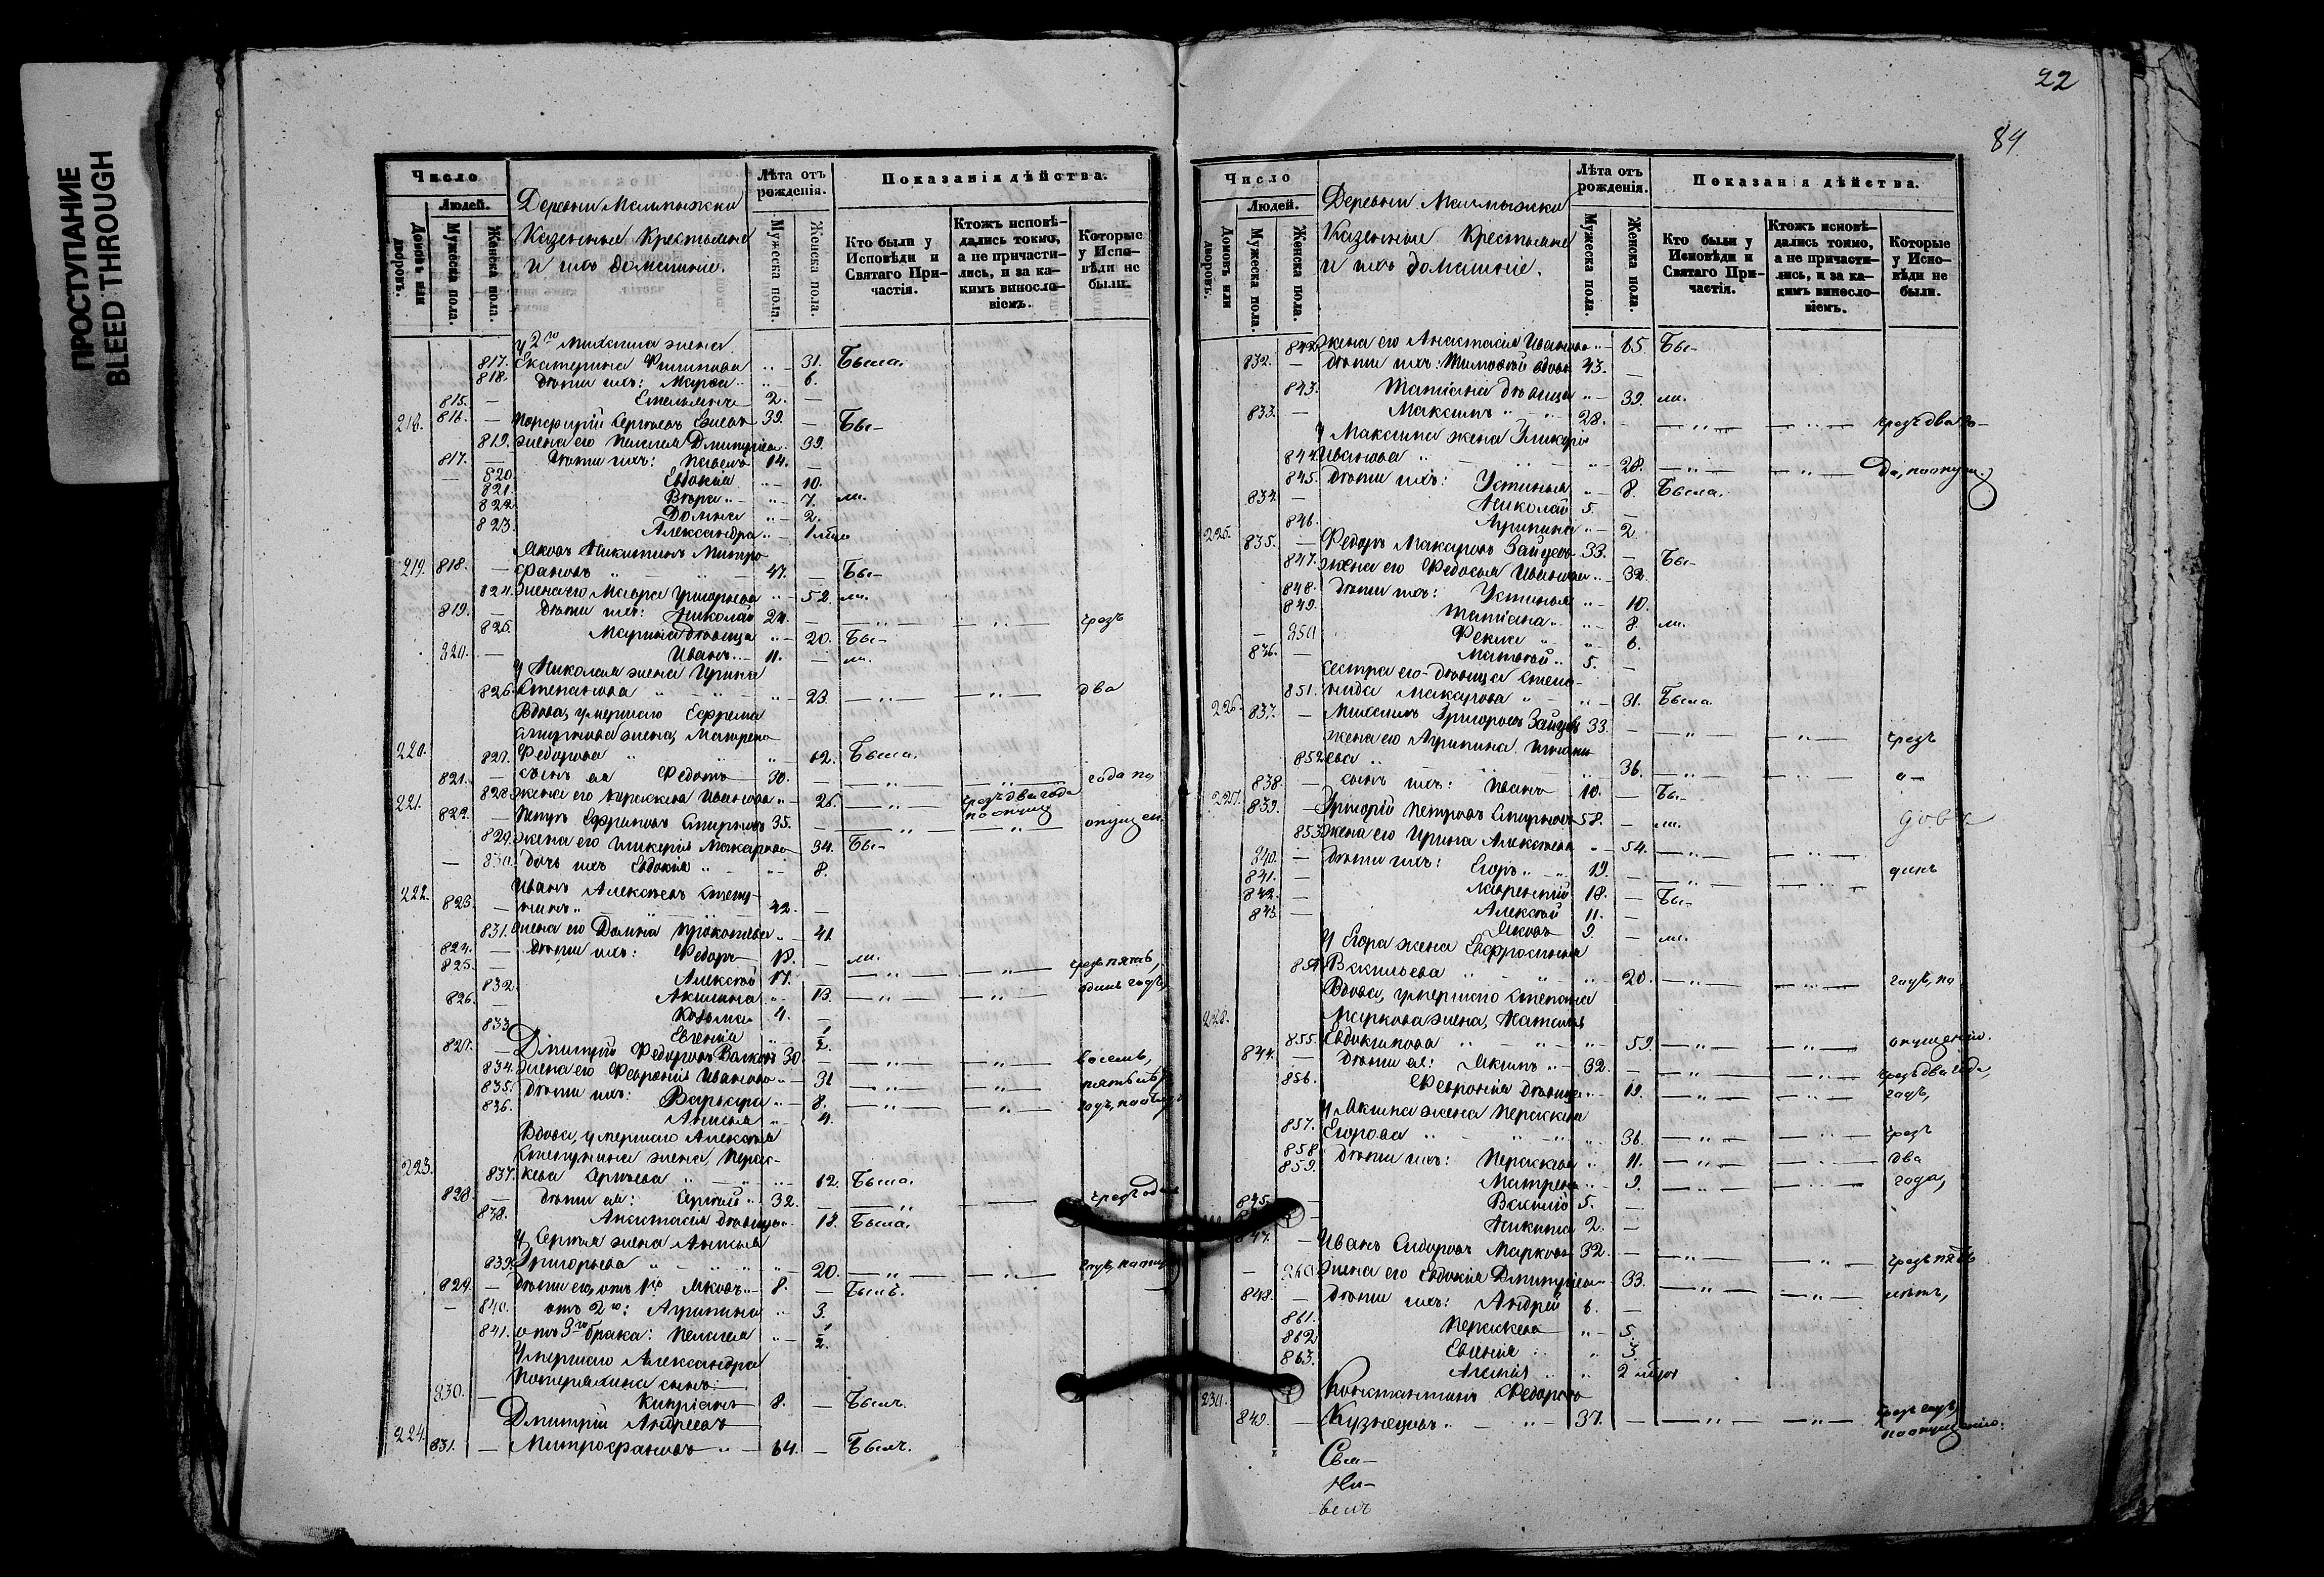 ПРОСТУПАНИЕ
BLEED THROUGH
22
84
Число
Людей.
Домовъ или дворовъ.
Мужеска пола.
Женска пола.
Деревни
Казенные Крестьяне
и ихъ домашніе.
Лѣта отъ рожденія.
Мужеска пола.
Женска пола.
Показанія дѣйства.
Кто были у Исповѣди и Святаго Причастія.
Ктожъ исповѣдались токмо, а не причастились, и за какимъ винословіемъ.
Которые у Исповѣди не были.
у 2го Михаила жена
817. Екатерина Филипова 31. Была.
818. дѣти ихъ: Марѳа 6.
815. Емельянъ 2.
218. 816. Порфирій Сергѣевъ 39. Бы-
819. жена его Пелагея Дмитріева 39.
817. дѣти ихъ: Павелъ 14.
820. Евдокія 10.
821. Вѣра 7. ли.
822. Домна 2.
823. Александра 1
Яковъ Никитинъ Митро-
219. 818. фановъ 47. Бы-
824. жена его Марѳа Григорьева 52. ли.
819. дѣти ихъ: Николай 24. чрезъ
825. Марина дѣвица 20. Бы-
820. Иванъ 11. ли.
у Николая жена Ирина
826. Степанова 23. два
Вдова, умершаго Ефрема
Смирнова жена, Матрена
220. 827. Федорова 62. Была.
821. сынъ ея Федотъ 30. года по
828. жена его Параскева Иванова 26. чрезъ два года
221. 822. Петръ Ефримовъ Смирновъ 35. опущен.
829. жена его Гликерія Макарова 34. Бы-
830. дочь ихъ Евдокія 8.
Иванъ Алексѣевъ Степу-
222. 823. нинъ 42.
831. жена его Домна Прокопьева 41.
824. дѣти ихъ: Федоръ 18. ли.
825. Алексѣй 17. чрезъ пять,
832. Акилина 13. одинъ годъ,
826. Козьма 4.
833. Евгенія 1/2.
827. Дмитрій Федоровъ Волковъ 30. восемь,
834. жена его Февронія Иванова 31
835. дѣти ихъ: Варвара 8.
836. Анисья 4.
Вдова, умершаго Алексѣя
Степунина жена, Парас-
223. 837. кева Сергѣева 62. Была.
828. дѣти ея: Сергѣй 32.
838. Анастасія дѣвица 18. Была.
у Сергѣя жена Анисья
839. Григорьева 20.
829. дѣти его, отъ 1го Яковъ 8. Былъ.
840. отъ 2го: Агрипина 3.
841. отъ 3го брака: Пелагея 1/2.
Умершаго Александра
Потеряхина сынъ:
830. Кипріанъ 8. Былъ.
Дмитрій Андреевъ
224. 831. Митрофановъ 64. Былъ.
Число
Людей.
Домовъ или дворовъ.
Мужеска пола.
Женска пола.
Деревни
Казенные Крестьяне
и ихъ домашніе.
Лѣта отъ рожденія.
Мужеска пола.
Женска пола.
Показанія дѣйства.
Кто были у Исповѣди и Святаго Причастія.
Ктожъ исповѣдались токмо, а не причастились, и за какимъ винословіемъ.
Которые у Исповѣди не были.
842. жена его Анастасія Иванова 65. Бы-
832. дѣти ихъ: Тимофей вдовъ 43.
843. Татіана дѣвица 39. ли.
833. Максимъ 28. чрезъ два го-
у Максима жена Гликерія
844. Иванова 28. да, по опущ.
845. дѣти ихъ: Устинья 8. Была.
834. Николай 5.
846. Агрипина 2.
225. 835. Федоръ Макаровъ Зайцевъ 33.
847. жена его Федосья Иванова 32. Бы-
848. дѣти ихъ: Устинья 10.
849. Татіана 8. ли.
850. Фекла 6.
836. Матвѣй 5.
сестра его-дѣвица Степа-
851. нида Макарова 31. Была.
226. 837. Михаилъ Григорьевъ Зайцевъ 33. чрезъ
жена его Агрипина
852. 36.
838. сынъ ихъ: Иванъ 10. Бы-
227. 839. Григорій Петровъ Смирновъ 58. ли.
853. жена его Ирина Алексѣева 54.
840. дѣти ихъ: Егоръ 19. одинъ
841. Лаврентій 18.
842. Алексѣй 11. Бы-
843. Яковъ 9. ли.
у Егора жена Евфросинья
854. Васильева 20. годъ, по
Вдова, умершаго Степана
228. Маркова жена, Наталья
855. Евдокимова 59. опущенію.
844. дѣти ея: Якимъ 32. чрезъ два года,
856. Февронія дѣвица 19. годъ,
у Якима жена Параскева
857. Егорова 36. чрезъ
858. дѣти ихъ: Параскева 11. два
859. Матрена 9. года,
845. Василій 5.
Никита 2.
847. Иванъ Сидоровъ Марковъ 32. чрезъ пять
860. жена его Евдокія Дмитріева 33. лѣтъ,
848. дѣти ихъ: Андрей 6.
861. Параскева 5.
862. Евгенія 3.
863. 2
230. Константинъ Федоровъ
849. Кузнецовъ 37. чрезъ годъ, по опущенію.